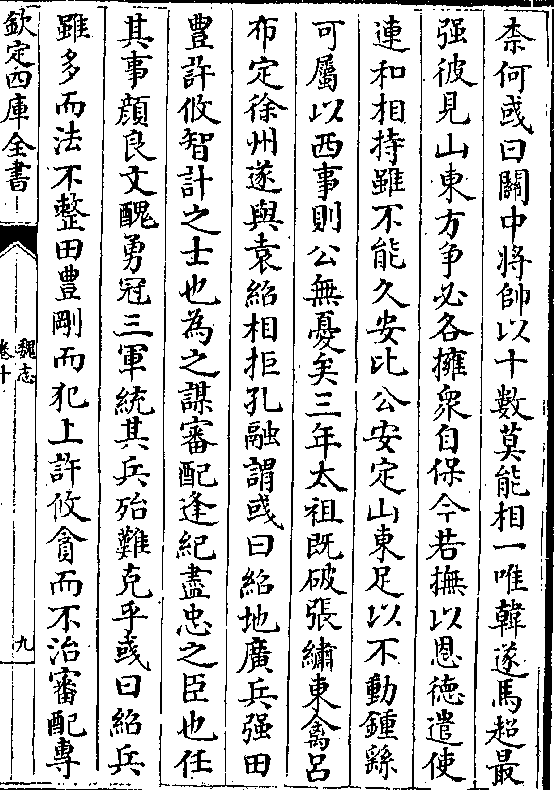 柰何或曰關中將帥以十數莫能相一唯韓遂馬超最
强彼見山東方争必各擁衆自保今若撫以恩德遣使
連和相持雖不能久安比公安定山東足以不動鍾繇
可屬以西事則公無憂矣三年太祖既破張繡東禽呂
布定徐州遂與袁紹相拒孔融謂彧曰紹地廣兵强田
豐許攸智計之士也為之謀審配逢紀盡忠之臣也任
其事顔良文醜勇冠三軍統其兵殆難克乎彧曰紹兵
雖多而法不整田豐剛而犯上許攸貪而不治審配專
欽定四庫全書
魏志
卷十
九